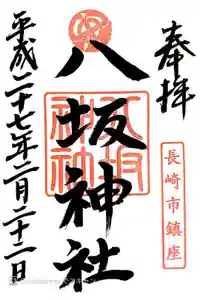 奉拝
長崎市鎮座
八坂神社
平成二十七年二月二十二日